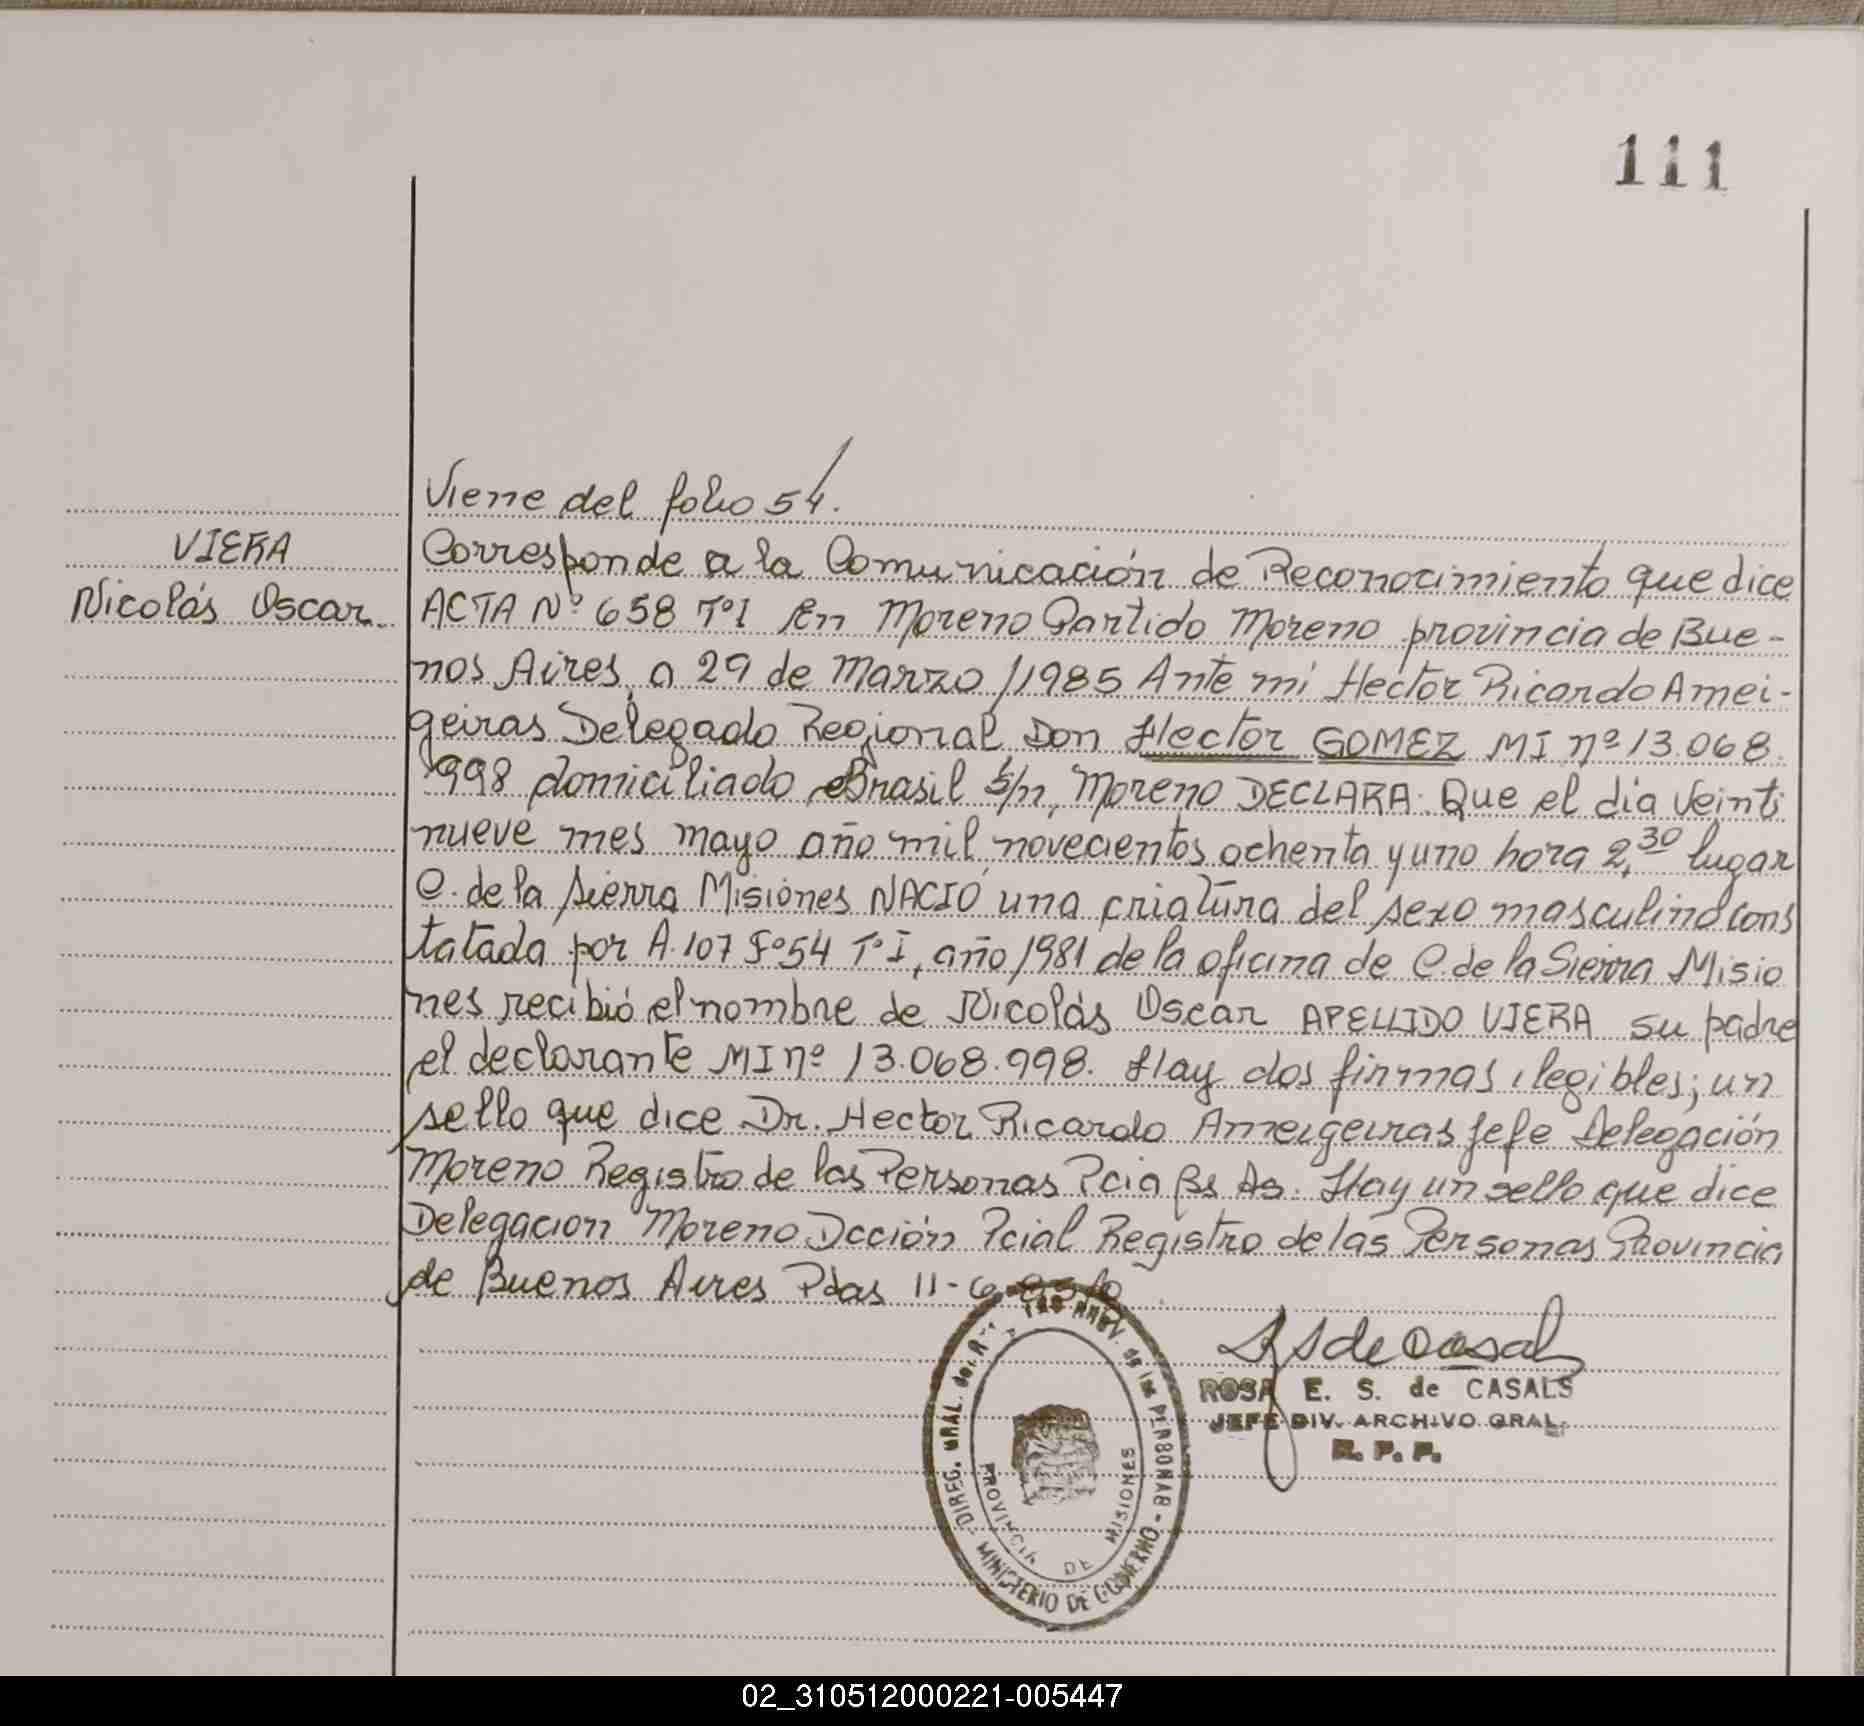 111
Viene del folio 54.
VIERA
Nicolás Oscar.
Corresponde a la Comunicación de Reconocimiento que dice
ACTA Nº 658 TºI En Moreno Partido Moreno provincia de Bue-
nos Aires, a 29 de Marzo /1985 Ante mi Hector Ricardo Amei-
geiras Delegado Regional Don Hector GOMEZ MI nº 13.068.
998 domiciliado Brasil s/n, Moreno DECLARA: Que el día veinti
nueve mes mayo año mil novecientos ochenta y uno hora 2,30 lugar
C. de la Sierra Misiones NACIÓ una criatura del sexo masculino cons
tatada por A. 107 Fº54 TºI, año 1981 de la oficina de C. de la Sierra Misio
nes recibió el nombre de Nicolás Oscar APELLIDO VIERA su padre
el declarante MI nº 13.068.998. Hay dos firmas ilegibles; un
sello que dice Dr. Hector Ricardo Ameigeiras Jefe Delegación
Moreno Registro de las Personas Pcia Bs As. Hay un sello que dice
Delegacion Moreno Dcción Pcial Registro de las Personas Provincia
de Buenos Aires Pdas 11-6
ROSA E. S. de CASALS
JEFE DIV. ARCHIVO GRAL.
R. P. P.
DIREG. GRAL. de las PERSONAS - MINISTERIO DE GOBIERNO
PROVINCIA DE MISIONES
02_310512000221-005447